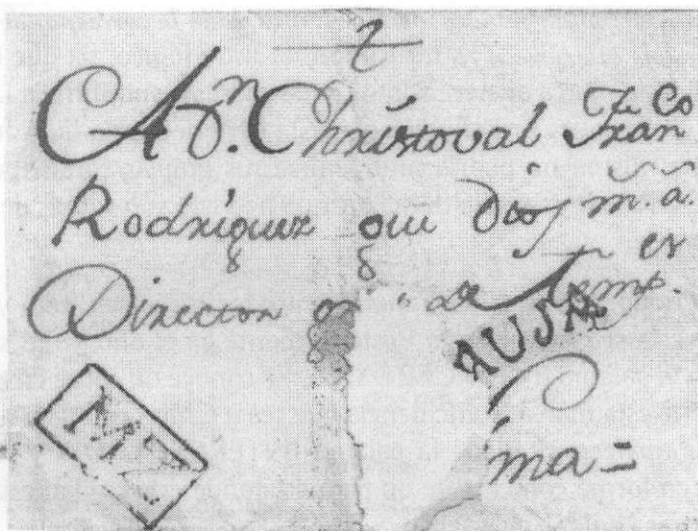 A Dn. Christoval Franco
Rodriguez que Dios m. a.
Director de Temp.es
XAUSA
MZ
Lima =